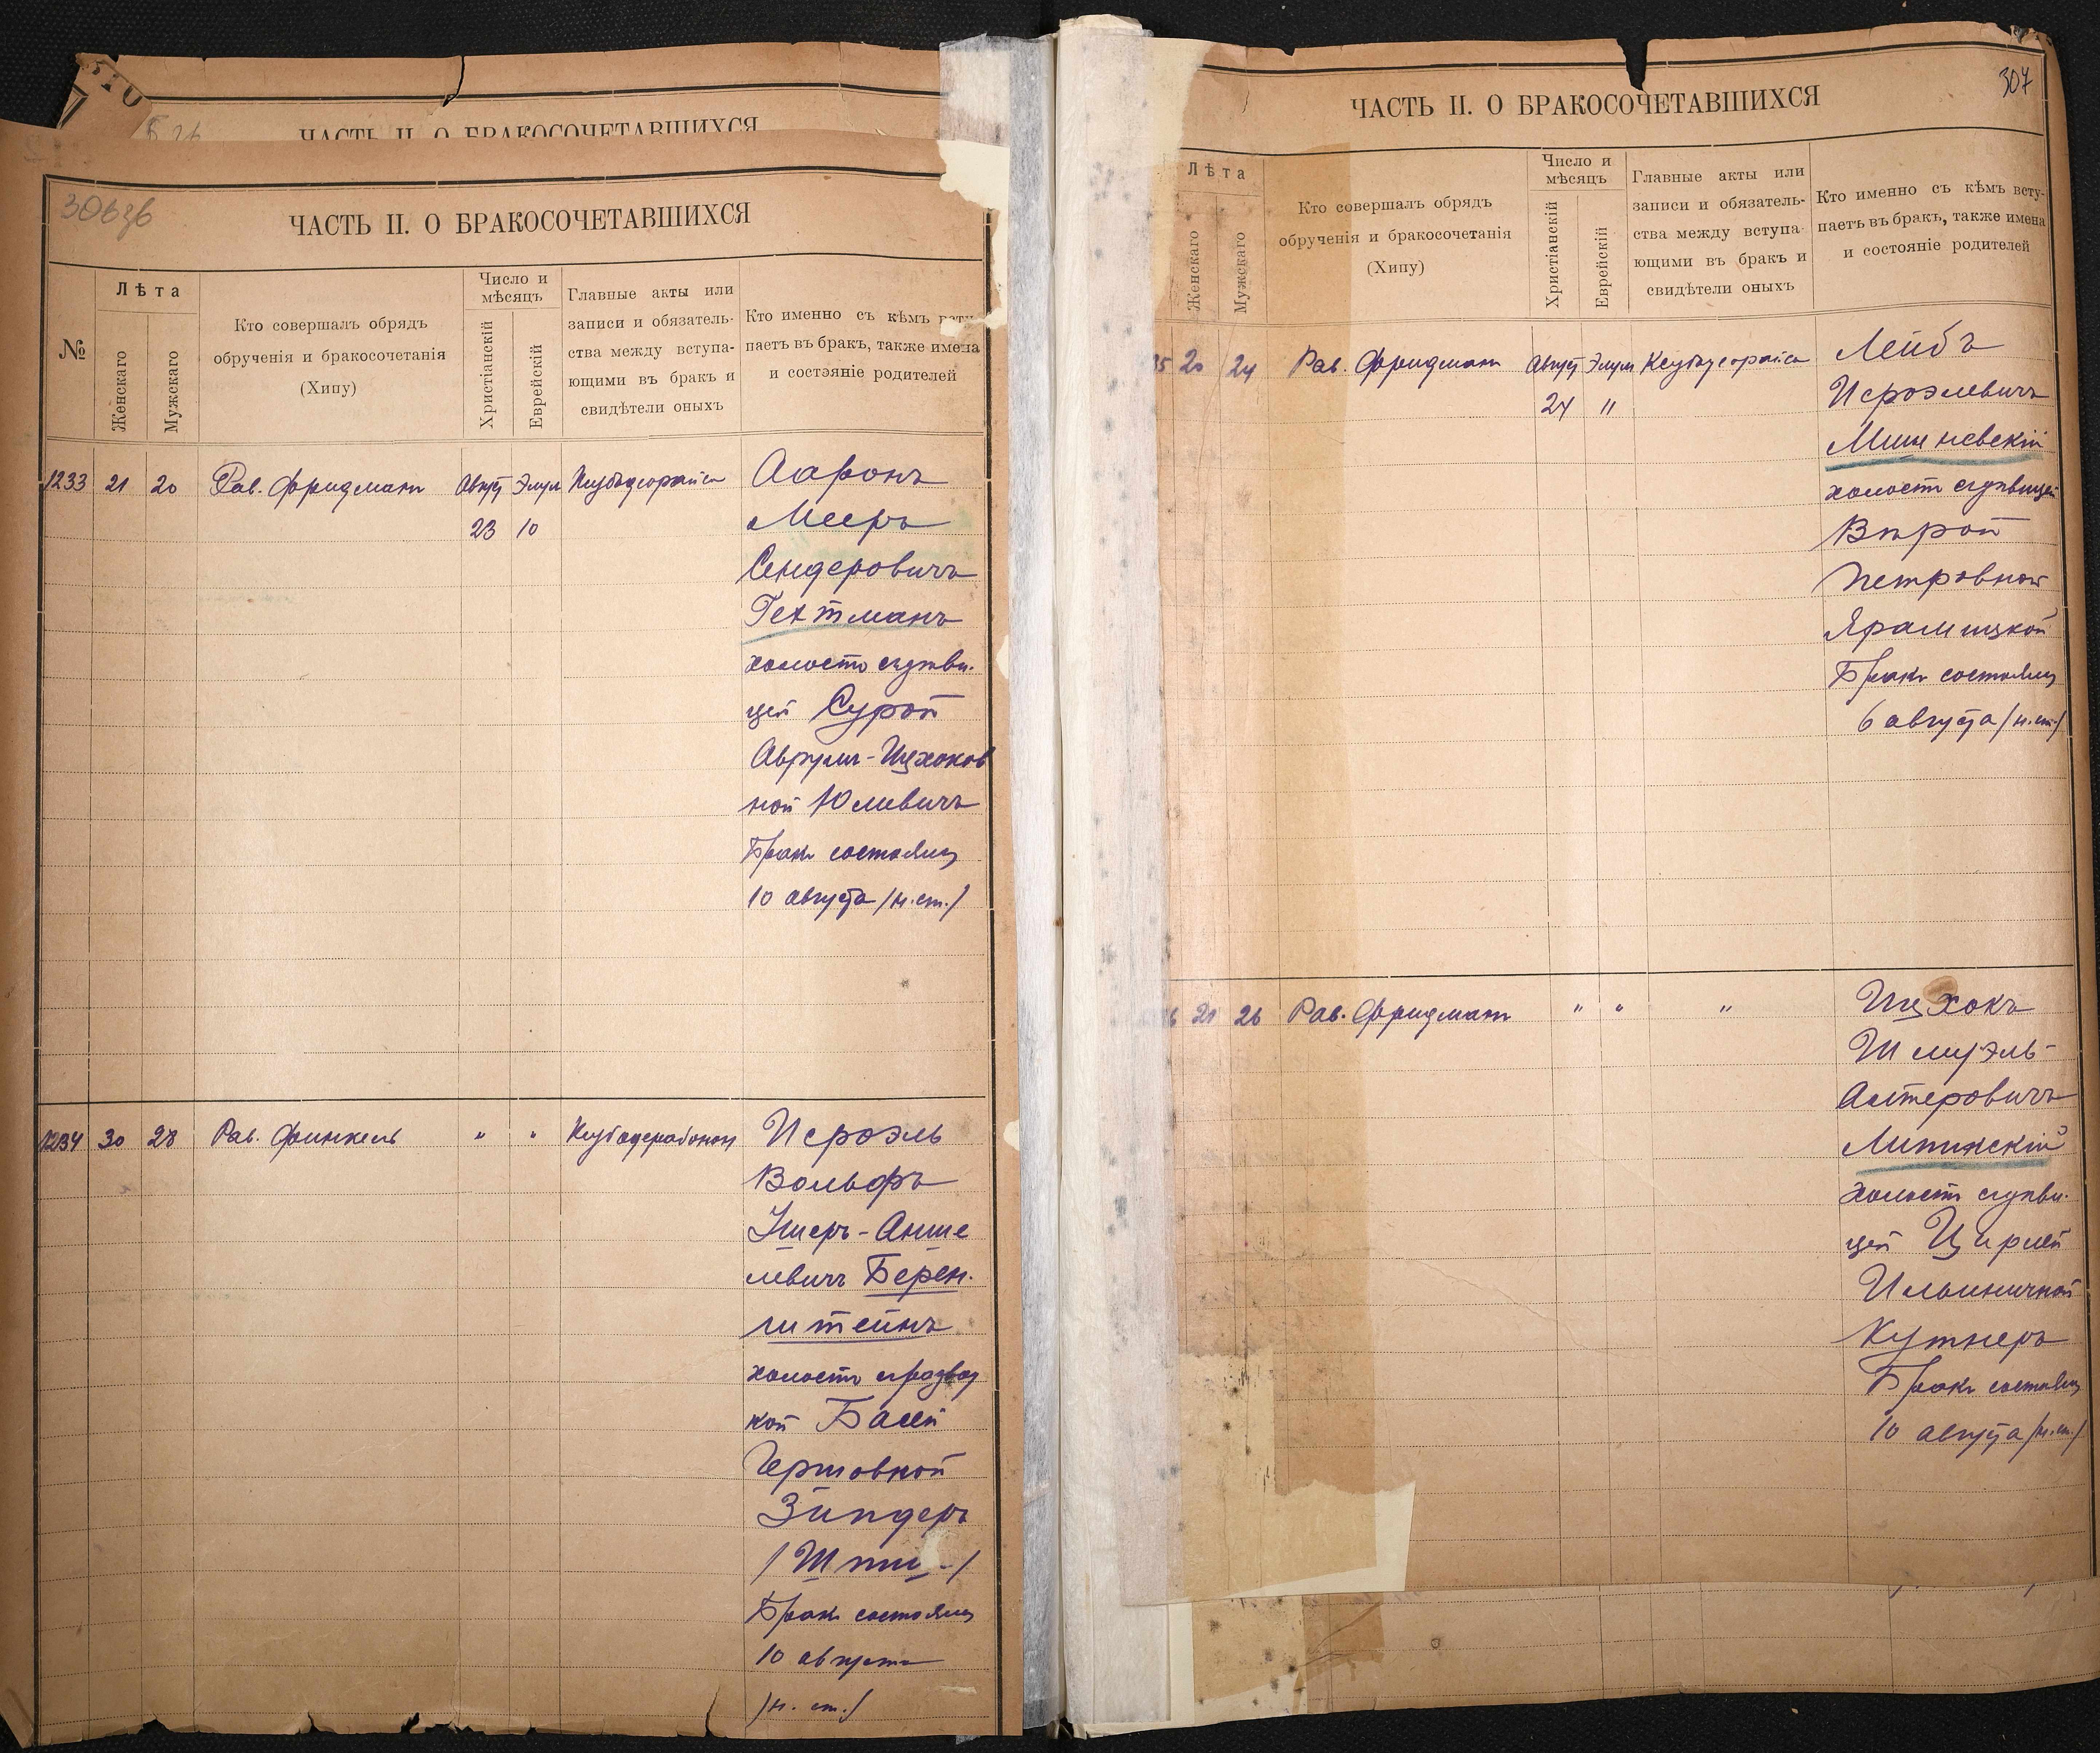 ЧАСТЬ II. О БРАКОСОЧЕТАВШИХСЯ
306зв
ЧАСТЬ II. О БРАКОСОЧЕТАВШИХСЯ
№
Лѣта
Женскаго
Мужскаго
Кто совершалъ обрядъ
обрученія и бракосочетанія
(Хипу)
Число и
мѣсяцъ
Христіанскій
Еврейскій
Главные акты или
записи и обязатель-
ства между вступа-
ющими въ бракъ и
свидѣтели оныхъ
Кто именно съ кѣмъ всту-
паетъ въ бракъ, также имена
и состояніе родителей
1233 21 20 Рав. Фридманъ Август Элул
23 10
Ааронъ
Мееръ
Сендеровичъ
Гехтманъ
холостъ съ дѣви-
цей Сурой
Аврумъ-Ицхоков
ной Юлевичъ
Бракъ состоялся
10 августа /н.ст./
1234 30 28 Рав. Финкель " "
Исроэль
Вольфъ
Ушеръ-Анше
левичъ Берен-
штейнъ
холостъ съ развод
кой Басей
Гершовной
Зингеръ
Бракъ состоялся
10 августа
/н. ст./
307
ЧАСТЬ II. О БРАКОСОЧЕТАВШИХСЯ
Лѣта
Женскаго
Мужскаго
Кто совершалъ обрядъ
обрученія и бракосочетанія
(Хипу)
Число и
мѣсяцъ
Христіанскій
Еврейскій
Главные акты или
записи и обязатель-
ства между вступа-
ющими въ бракъ и
свидѣтели оныхъ
Кто именно съ кѣмъ всту-
паетъ въ бракъ, также имена
и состояніе родителей
35 20 24 Рав. Фридманъ Август Элул
24 "
Лейбъ
Исроэлевичъ
холостъ съ дѣвицей
Вѣрой
Петровной
Бракъ состоялся
6 августа /н.ст./
36 21 26 Рав. Фридманъ " " "
Ицхокъ
Шмуэль-
Алтеровичъ
Липинскій
холостъ съ дѣви-
цей Цирлей
Ильиничной
Кутнеръ
Бракъ состоялся
10 августа /н.ст./